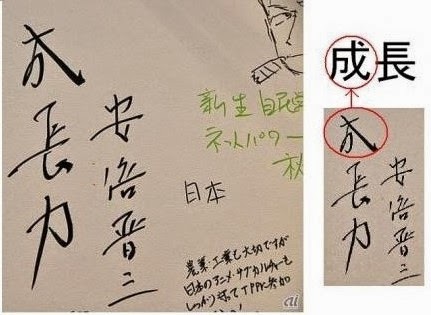 成長力
安倍晋三
新生 自民
ネットパワー
日本
農業、工業も大切ですが
日本のアニメ・サブカルチャーも
しっかり TPPに参加
ai
成長
成長力
安倍晋三